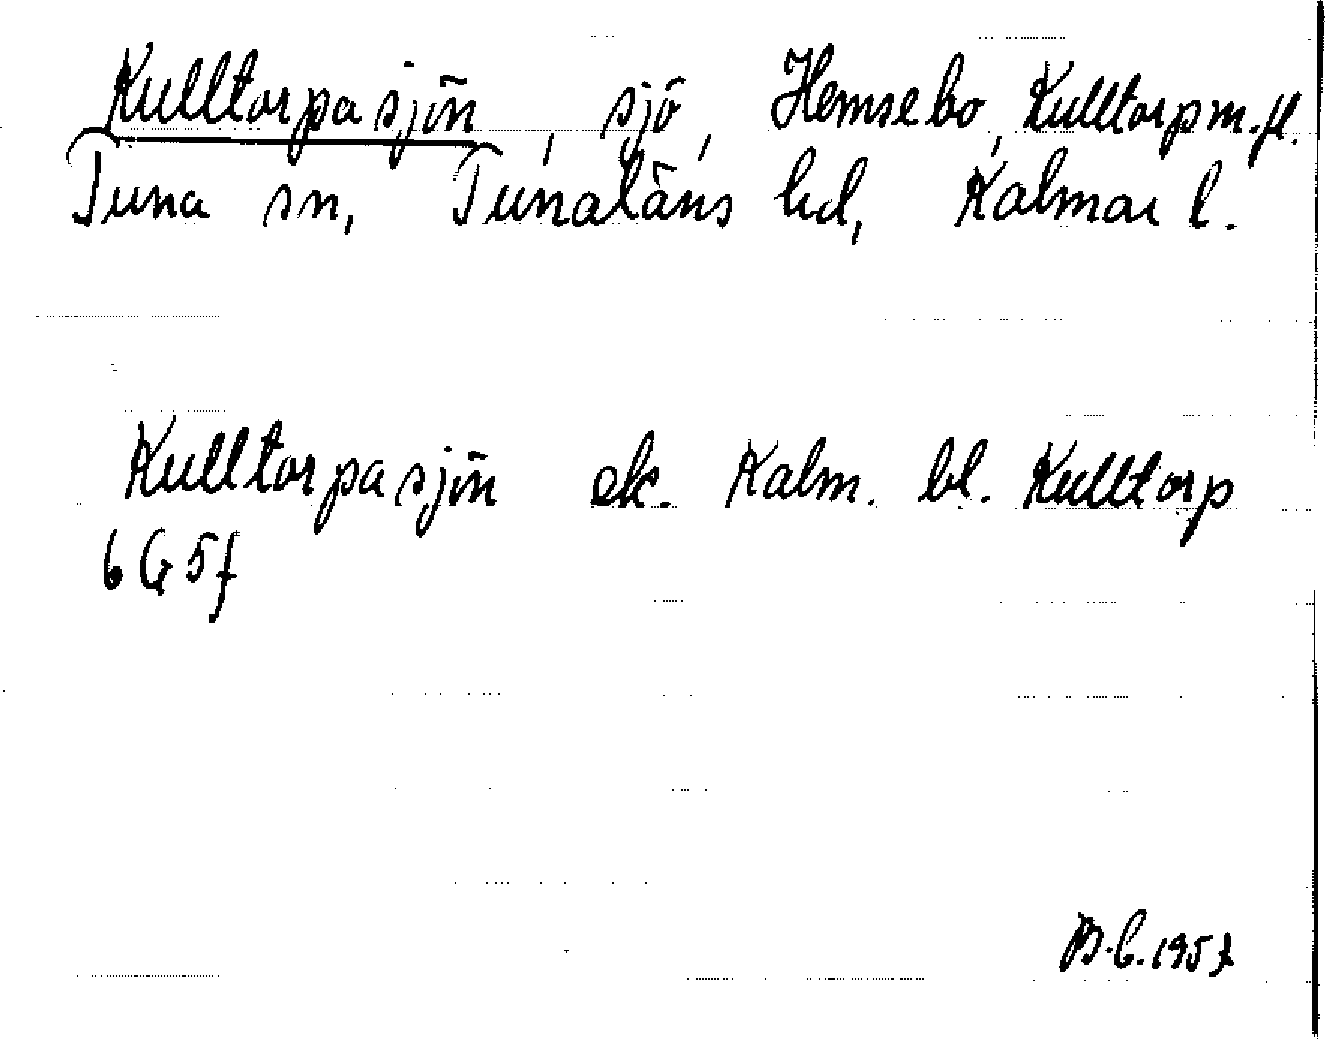 Kulltorpasjön, sjö, Hemsebo, Kulltorp m.fl.
Tuna sn, Tunaläns hd, Kalmar l.
Kulltorpasjön ek. Kalm. bl. Kulltorp
6G5f
B.L. 1957